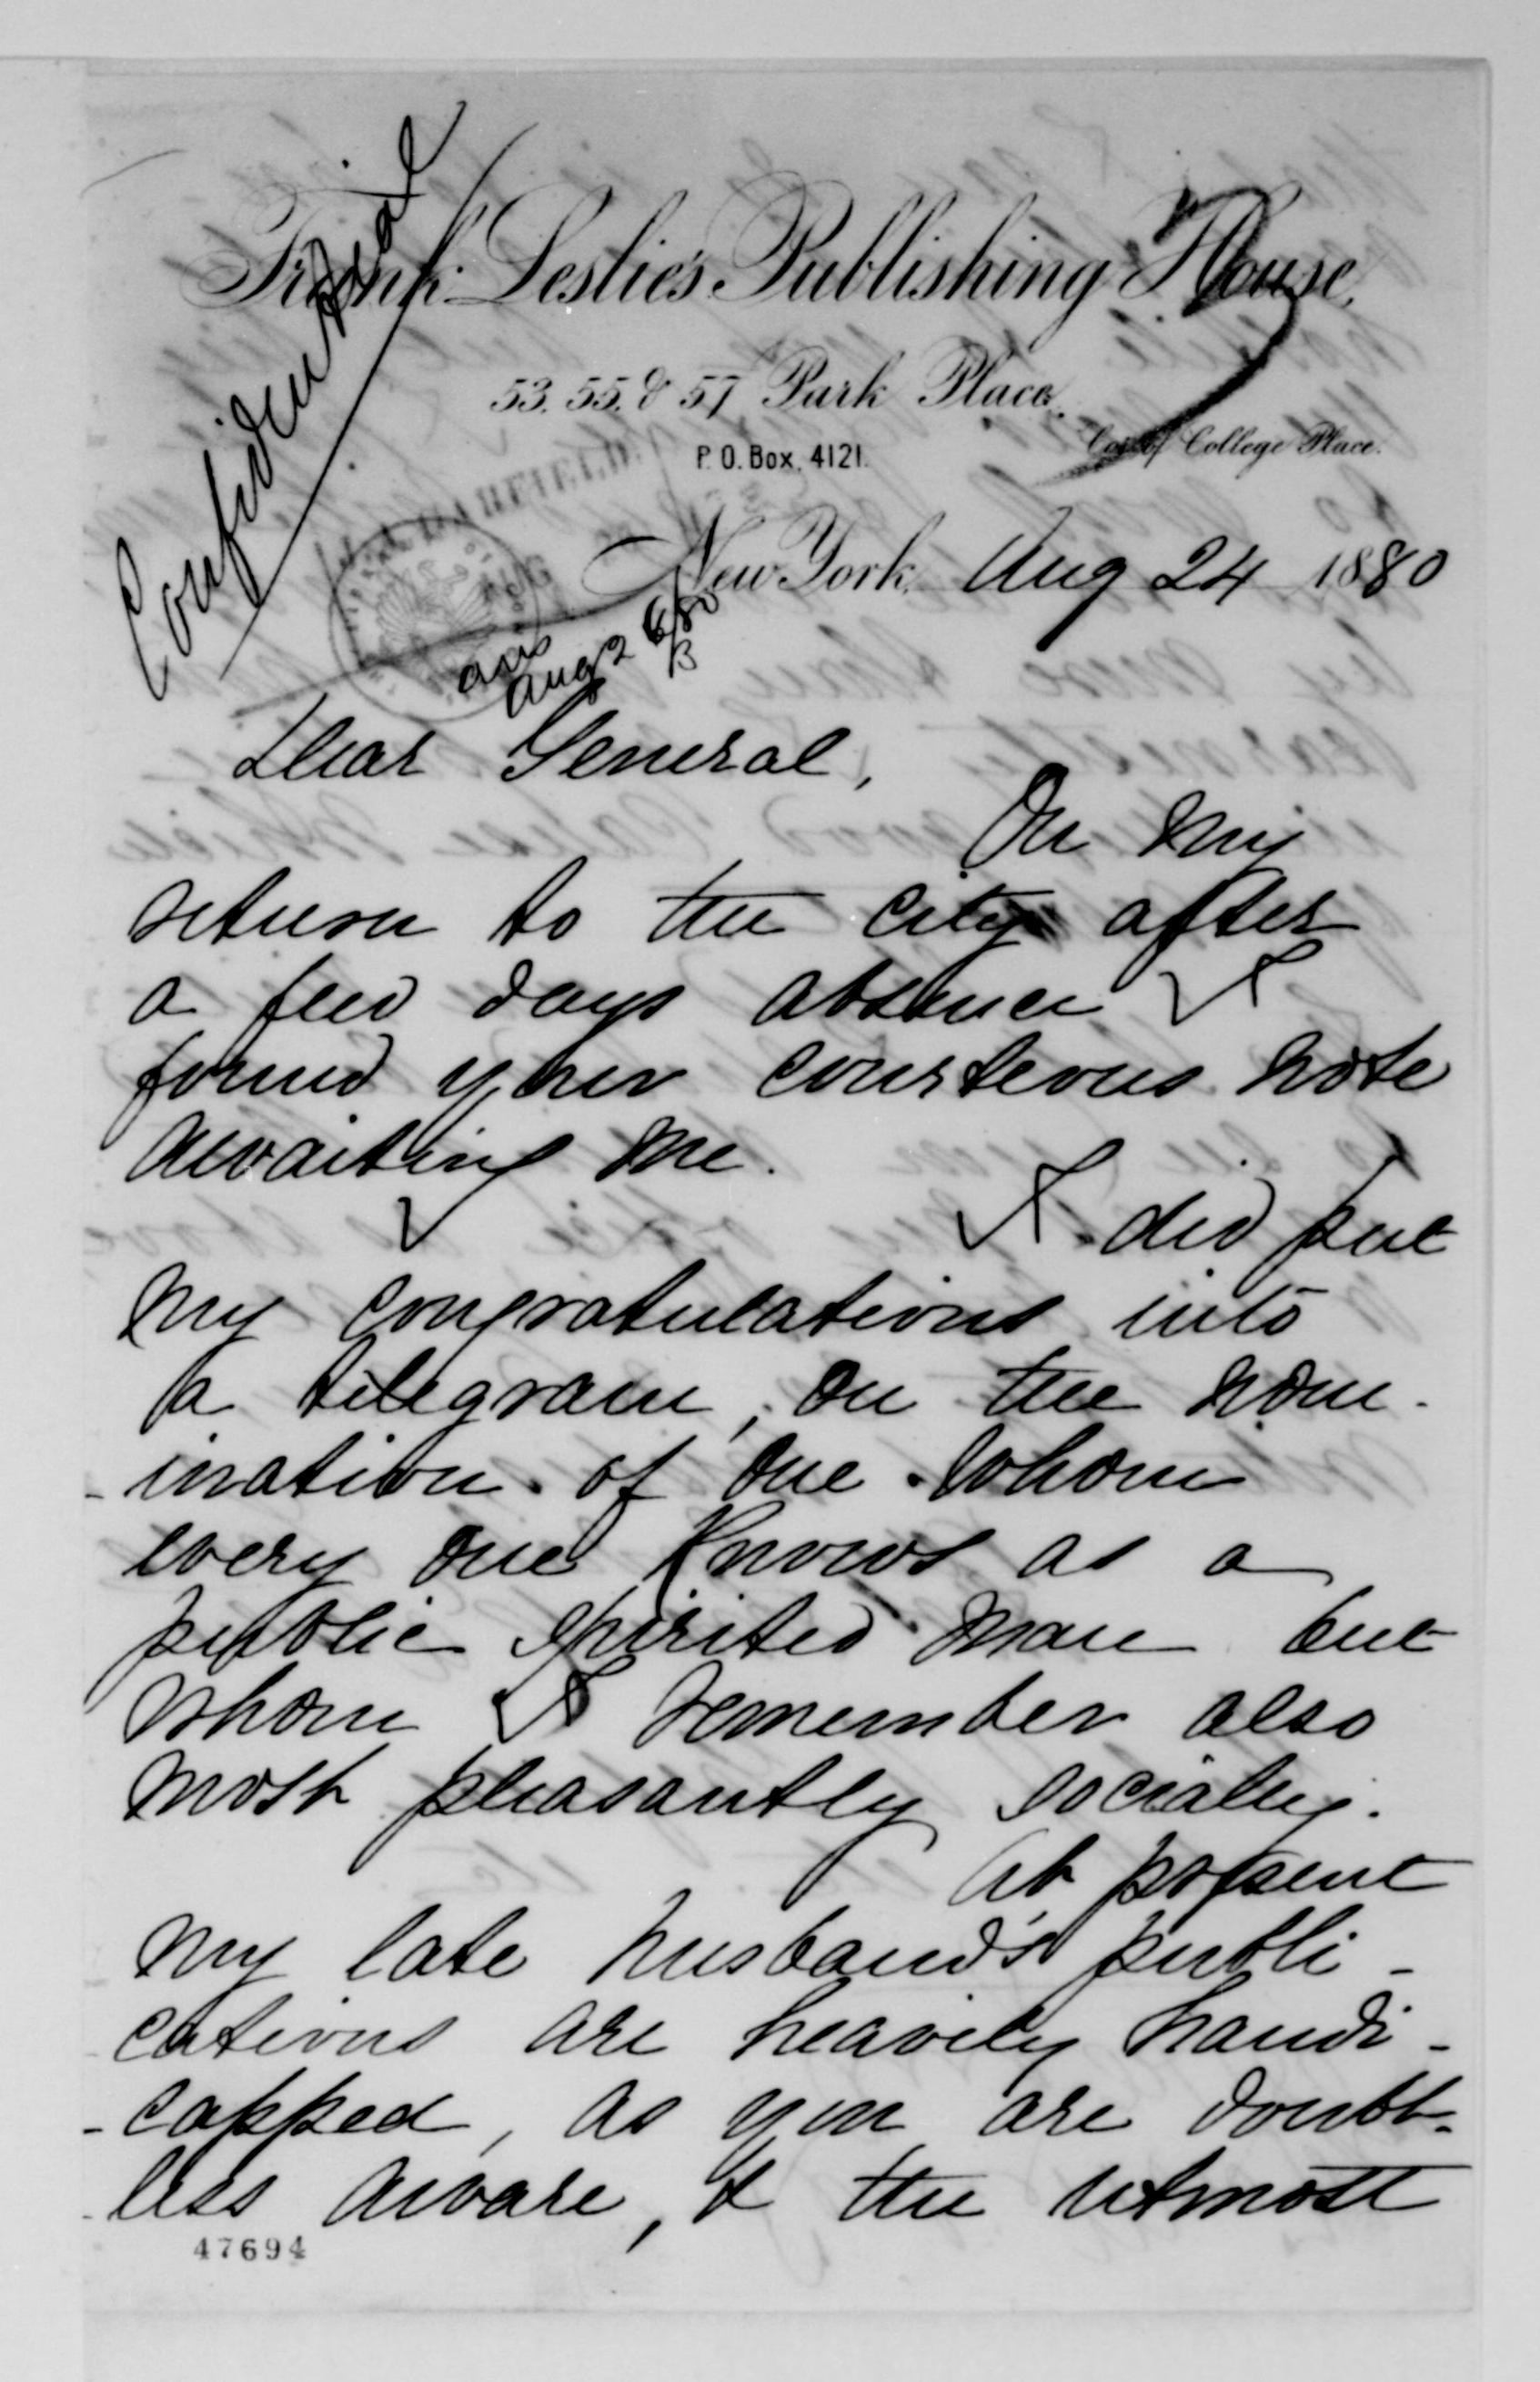 Confidential
Frank Leslie's Publishing House,
53. 55. & 57 Park Place,
Cor. of College Place.
P. O. Box, 4121.
GARFIELD
New York, Aug 24 1880
ans
Aug 26/80
B
Dear General,
On my
return to the city after
a few days absence I
found your courteous note
awaiting me.
I did put
my congratulations into
a telegram, on the nom-
-ination of one whom
every one knows as a
public spirited man but
whom I remember also
most pleasantly socially.
At present
my late husband's publi-
-cations are heavily handi-
-capped, as you are doubt-
-less aware, & the utmost
47694